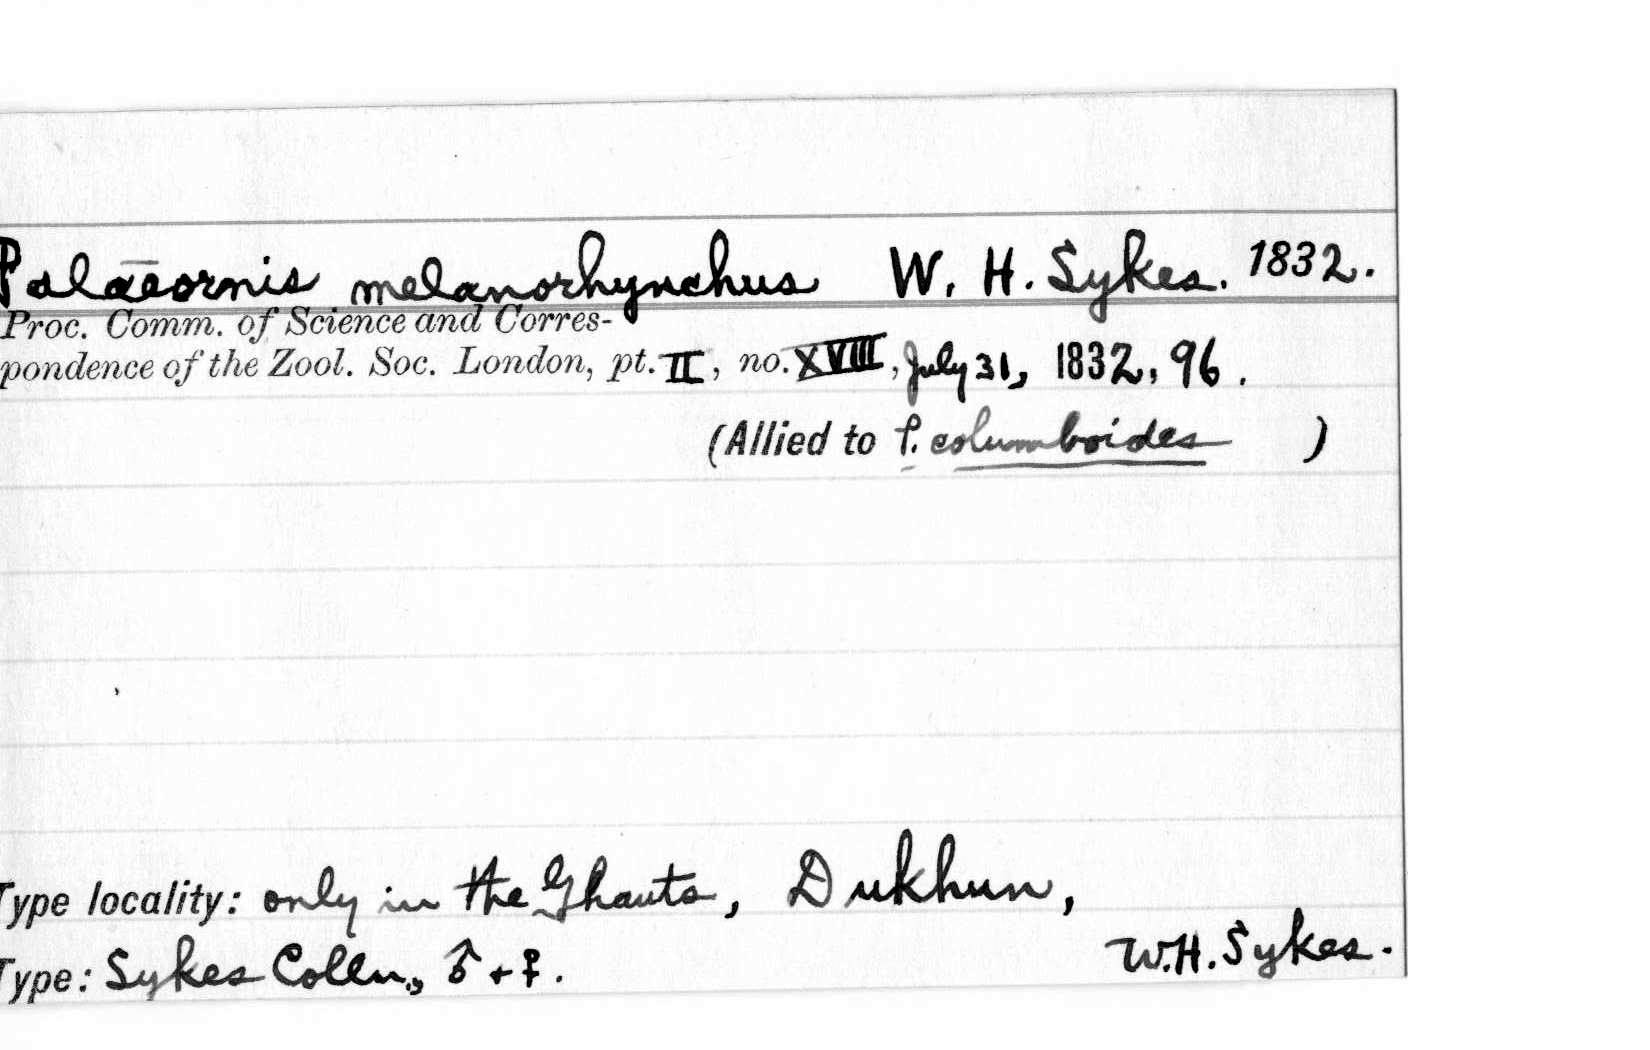 Palaeornis melanorhynchus W. H. Sykes. 1832.
Proc. Comm. of Science and Corres-
pondence of the Zool. Soc. London, pt. II, no. XVIII, July 31, 1832, 96.
(Allied to P. columboides )
Type locality: only in the Ghauts, Dukhun,
W.H. Sykes.
Type: Sykes Colln., ♂ + ♀.